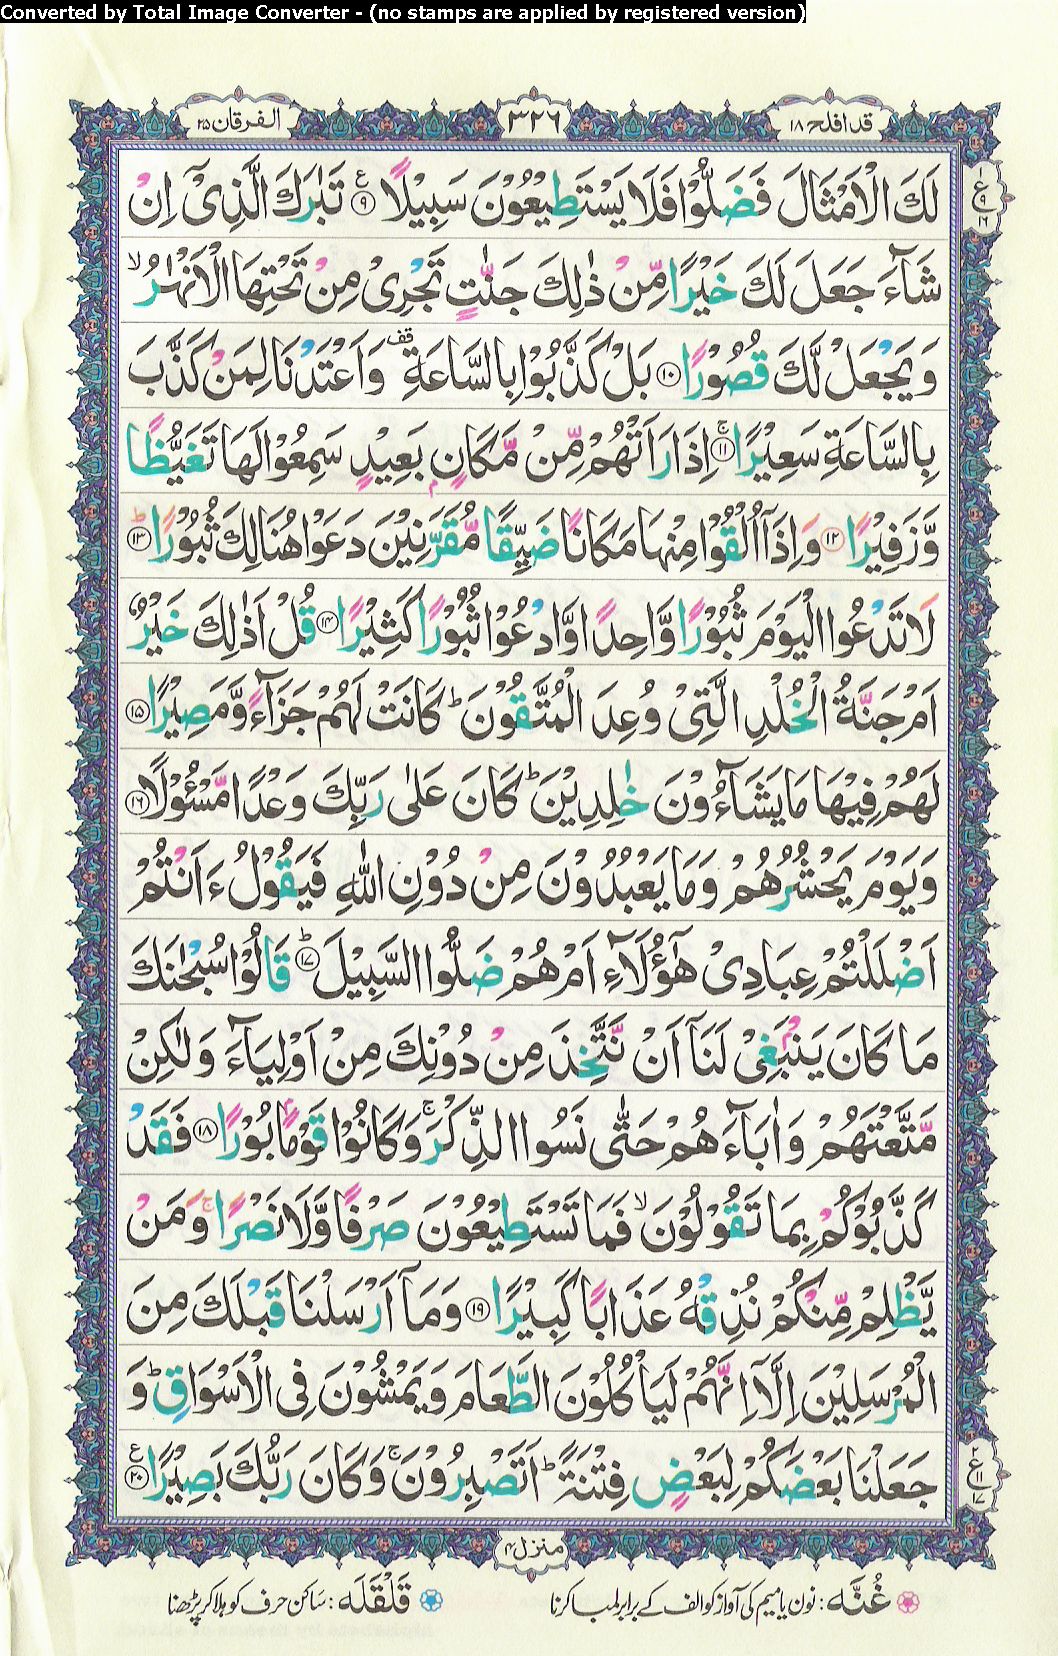 Converted by Total Image Converter - (no stamps are applied by registered version)
قد افلح ۱۸
۳۲۶
الفرقان ۲۵
لَكَ الْاَمْثَالَ فَضَلُّوْا فَلَا يَسْتَطِيْعُوْنَ سَبِيْلًا ۹ تَبٰرَكَ الَّذِيْۤ اِنْ
شَآءَ جَعَلَ لَكَ خَيْرًا مِّنْ ذٰلِكَ جَنّٰتٍ تَجْرِيْ مِنْ تَحْتِهَا الْاَنْهٰرُ ۙ
وَيَجْعَلْ لَّكَ قُصُوْرًا ۱۰ بَلْ كَذَّبُوْا بِالسَّاعَةِ قف وَاَعْتَدْنَا لِمَنْ كَذَّبَ
بِالسَّاعَةِ سَعِيْرًا ۚ ۱۱ اِذَا رَاَتْهُمْ مِّنْ مَّكَانٍۭ بَعِيْدٍ سَمِعُوْا لَهَا تَغَيُّظًا
وَّزَفِيْرًا ۱۲ وَاِذَاۤ اُلْقُوْا مِنْهَا مَكَانًا ضَيِّقًا مُّقَرَّنِيْنَ دَعَوْا هُنَالِكَ ثُبُوْرًا ؕ ۱۳
لَا تَدْعُوا الْيَوْمَ ثُبُوْرًا وَّاحِدًا وَّادْعُوْا ثُبُوْرًا كَثِيْرًا ۱۴ قُلْ اَذٰلِكَ خَيْرٌ
اَمْ جَنَّةُ الْخُلْدِ الَّتِيْ وُعِدَ الْمُتَّقُوْنَ ؕ كَانَتْ لَهُمْ جَزَآءً وَّمَصِيْرًا ۱۵
لَهُمْ فِيْهَا مَا يَشَآءُوْنَ خٰلِدِيْنَ ؕ كَانَ عَلٰى رَبِّكَ وَعْدًا مَّسْـُٔوْلًا ۱۶
وَيَوْمَ يَحْشُرُهُمْ وَمَا يَعْبُدُوْنَ مِنْ دُوْنِ اللّٰهِ فَيَقُوْلُ ءَاَنْتُمْ
اَضْلَلْتُمْ عِبَادِيْ هٰۤؤُلَآءِ اَمْ هُمْ ضَلُّوا السَّبِيْلَ ؕ ۱۷ قَالُوْا سُبْحٰنَكَ
مَا كَانَ يَنْۢبَغِيْ لَنَاۤ اَنْ نَّتَّخِذَ مِنْ دُوْنِكَ مِنْ اَوْلِيَآءَ وَلٰكِنْ
مَّتَّعْتَهُمْ وَاٰبَآءَهُمْ حَتّٰى نَسُوا الذِّكْرَ ۚ وَكَانُوْا قَوْمًۢا بُوْرًا ۱۸ فَقَدْ
كَذَّبُوْكُمْ بِمَا تَقُوْلُوْنَ ۙ فَمَا تَسْتَطِيْعُوْنَ صَرْفًا وَّلَا نَصْرًا ۚ وَمَنْ
يَّظْلِمْ مِّنْكُمْ نُذِقْهُ عَذَابًا كَبِيْرًا ۱۹ وَمَاۤ اَرْسَلْنَا قَبْلَكَ مِنَ
الْمُرْسَلِيْنَ اِلَّاۤ اِنَّهُمْ لَيَاْكُلُوْنَ الطَّعَامَ وَيَمْشُوْنَ فِي الْاَسْوَاقِ ؕ وَ
جَعَلْنَا بَعْضَكُمْ لِبَعْضٍ فِتْنَةً ؕ اَتَصْبِرُوْنَ ۚ وَكَانَ رَبُّكَ بَصِيْرًا ۲۰
منزل ۴
غُنَّه : نون یا میم کی آواز کو الف کے برابر لمبا کرنا
قَلْقَلَه : ساکن حرف کو ہلا کر پڑھنا